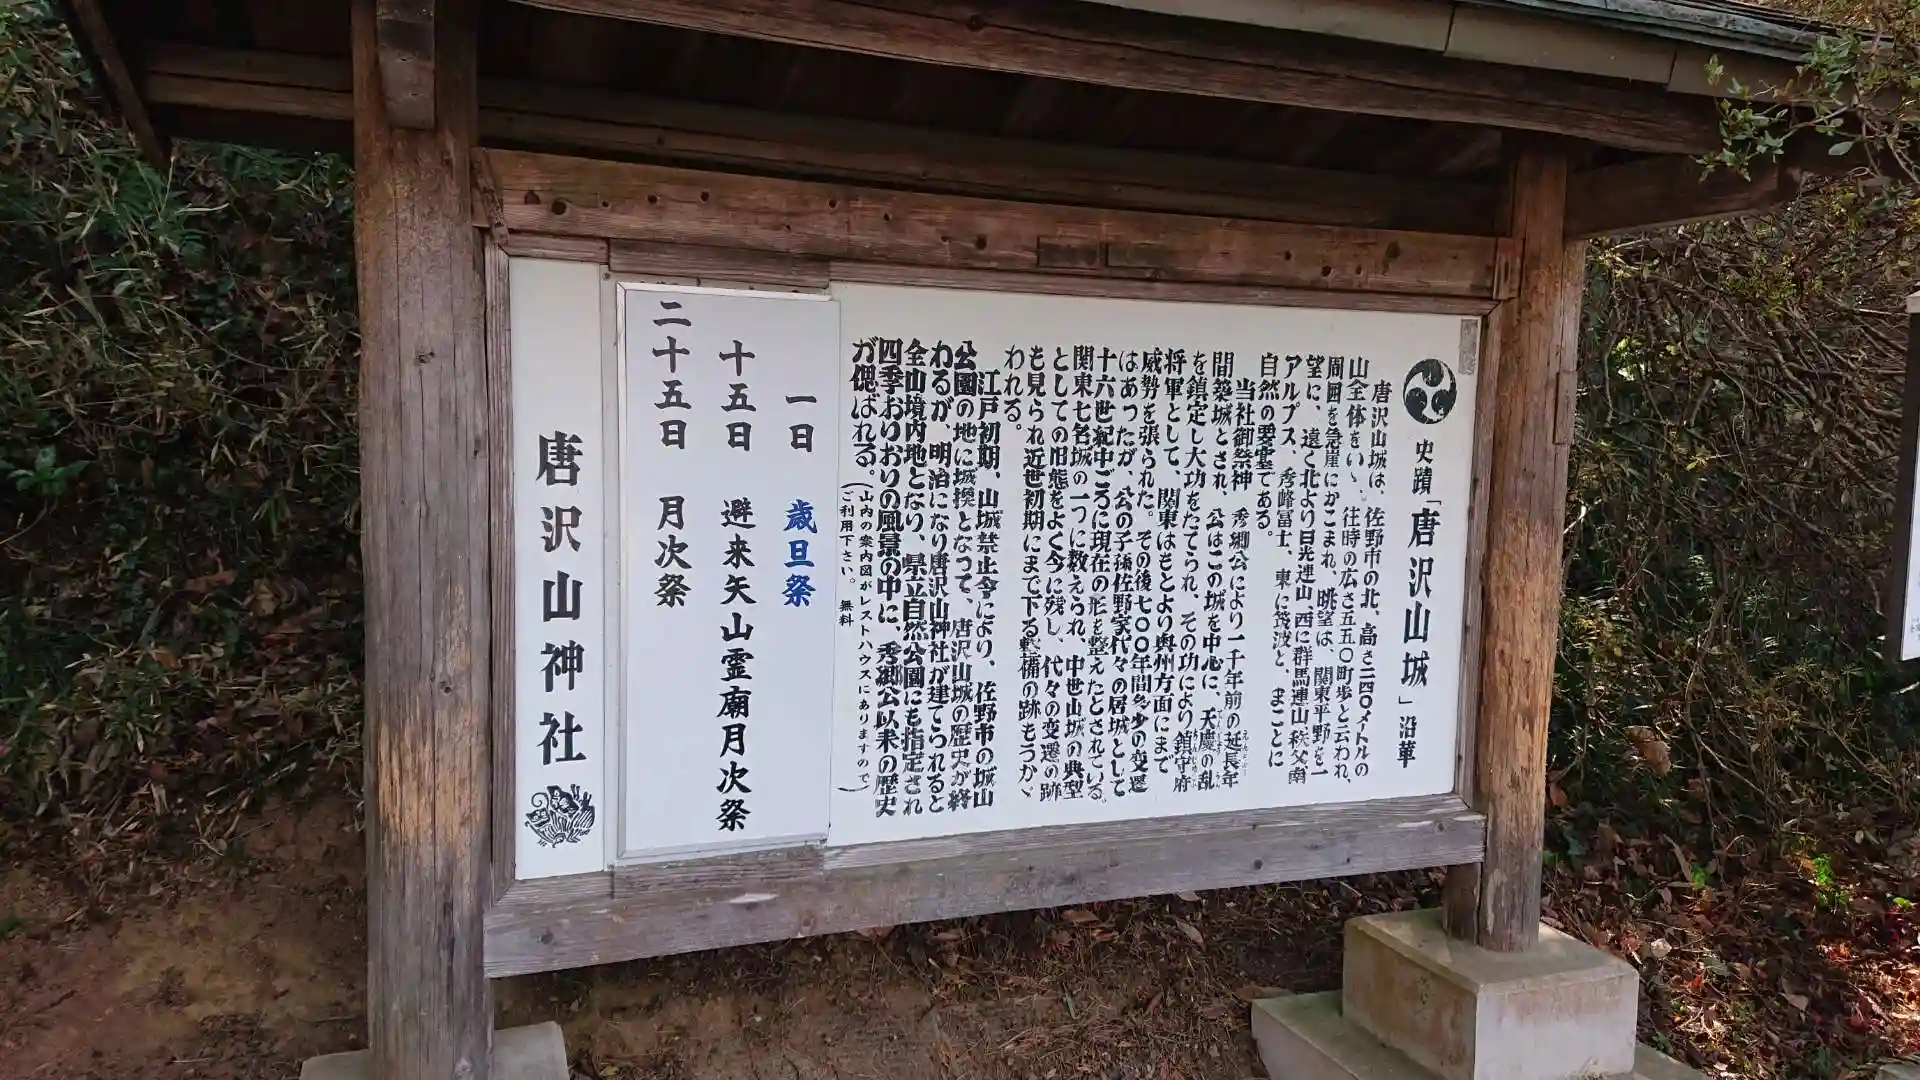 史蹟「唐沢山城」沿革
唐沢山城は、佐野市の北、高さ二四〇メートルの
山全体をいゝ、往時の広さ五五〇町歩と云われ、
周囲を急崖にかこまれ、眺望は、関東平野を一
望に、遠く北より日光連山、西に群馬連山秩父南
アルプス、秀峰富士、東に筑波と、まことに
自然の要塞である。
当社御祭神 秀郷公により一千年前の延長年
間築城とされ、公はこの城を中心に、天慶の乱
を鎮定し大功をたてられ、その功により鎮守府
将軍として、関東はもとより奥州方面にまで
威勢を張られた。その後七〇〇年間多少の変遷
はあったが、公の子孫佐野家代々の居城として
十六世紀中ごろに現在の形を整えたとされている。
関東七名城の一つに数えられ、中世山城の典型
としての旧態をよく今に残し、代々の変遷の跡
も見られ近世初期にまで下る整備の跡もうかゞ
われる。
江戸初期、山城禁止令により、佐野市の城山
公園の地に城換となって、唐沢山城の歴史が終
わるが、明治になり唐沢山神社が建てられると
全山境内地となり、県立自然公園にも指定され
四季おりおりの風景の中に、秀郷公以来の歴史
が偲ばれる。(山内の案内図がレストハウスにありますので
ご利用下さい。 無料)
一日 歳旦祭
十五日 避来矢山霊廟月次祭
二十五日 月次祭
唐沢山神社